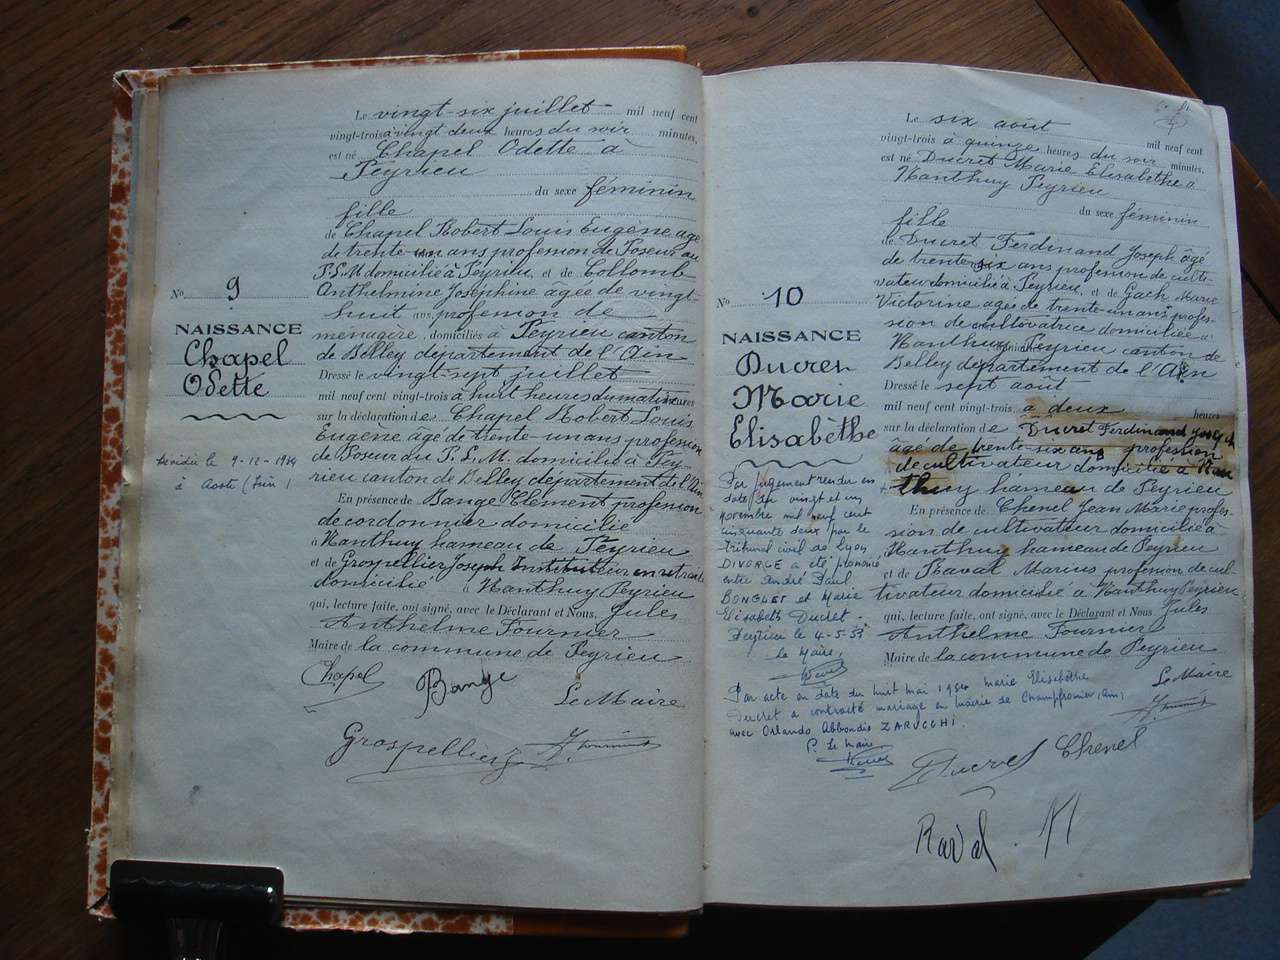 Le vingt-six juillet mil neuf cent
vingt-trois à vingt deux heures du soir minutes,
est né Chapel Odette à
Peyrieu
du sexe féminin
fille
de Chapel Robert Louis Eugène âgé
de trente-un ans profession de Poseur au
P.L.M domicilié à Peyrieu, et de Collomb
Anthelmine Joséphine âgée de vingt-
huit ans, profession de
ménagère, domiciliés à Peyrieu canton
de Belley département de l'Ain
Dressé le vingt-sept juillet
mil neuf cent vingt-trois à huit heures du matin heures
sur la déclaration de Chapel Robert Louis
Eugène âgé de trente-un ans profession
de Poseur du P.L.M. domicilié à Pey-
rieu canton de Belley département de l'Ain
En présence de Bange Clément profession
de cordonnier domicilié
à Nanthuy hameau de Peyrieu
et de Grospellier Joseph Instituteur en retraite
domicilié à Nanthuy Peyrieu
qui, lecture faite, ont signé, avec le Déclarant et Nous, Jules
Anthelme Fournier
Maire de la commune de Peyrieu
Chapel
Bange
Le Maire
Grospellier
J. Fournier
No 9
NAISSANCE
Chapel
Odette
le 9-12-1984
à Aoste (
Le six août mil neuf cent
vingt-trois à quinze heures du soir minutes,
est né Ducret Marie Elisabèthe à
Nanthuy Peyrieu
du sexe féminin
fille
de Ducret Ferdinand Joseph âgé
de trente-six ans profession de culti-
vateur domicilié à Peyrieu, et de Gach Marie
Victorine agée de trente-un ans profes-
sion de cultivatrice domiciliée à
Nanthuy Peyrieu canton de
Belley département de l'Ain
Dressé le sept août
mil neuf cent vingt-trois à deux heures
sur la déclaration de Ducret Ferdinand Joseph
âgé de trente-six ans profession
de cultivateur domicilié à Nan
thuy hameau de Peyrieu
En présence de Chenel Jean Marie profes-
sion de cultivateur domicilié à
Nanthuy hameau de Peyrieu
et de Raval Marius profession de cul-
tivateur domicilié à Nanthuy Peyrieu
qui, lecture faite, ont signé, avec le Déclarant et Nous, Jules
Anthelme Fournier
Maire de la commune de Peyrieu
Le Maire
J. Fournier
Ducret
Chenel
Raval
No 10
NAISSANCE
Ducret
Marie
Elisabèthe
Par jugement rendu en
date du vingt et un
Novembre mil neuf cent
cinquante deux par le
tribunal civil de Lyon
DIVORCE a été prononcé
entre André Paul
BONGLET et Marie
Elisabeth Ducret.
Peyrieu le 4-5-53
Le Maire,
Par acte en date du huit mai 1954 Marie Elisabèthe
Ducret a contracté mariage en mairie de Champfromier (Ain)
avec Orlando Abbondio ZARUCCHI.
P. Le Maire